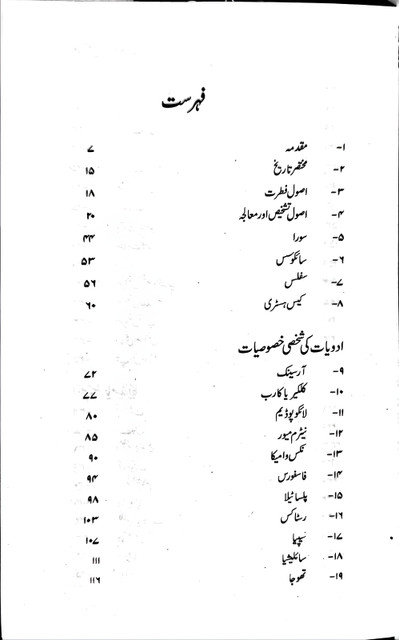 فہرست
۱- مقدمہ ۷
۲- مختصر تاریخ ۱۵
۳- اصول فطرت ۱۸
۴- اصول تشخیص اور معالجہ ۲۰
۵- سورا ۴۴
۶- سائکوسس ۵۳
۷- سفلس ۵۶
۸- کیس ہسٹری ۶۰
ادویات کی شخصی خصوصیات
۹- آرسینک ۷۲
۱۰- کلکیریا کارب ۷۷
۱۱- لائکوپوڈیم ۸۰
۱۲- نیٹرم میور ۸۵
۱۳- نکس وامیکا ۹۰
۱۴- فاسفورس ۹۴
۱۵- پلساٹیلا ۹۸
۱۶- رسٹاکس ۱۰۳
۱۷- سیپیا ۱۰۷
۱۸- سائلیشیا ۱۱۱
۱۹- تھوجا ۱۱۶